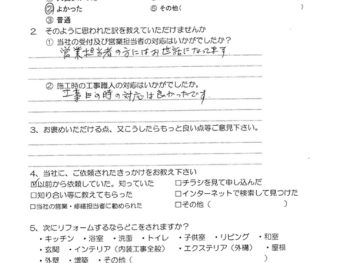 ② よかった ⑤ その他(
③ 普通
2 そのように思われた訳を教えていただけませんか
① 当社の受付及び営業担当者の対応はいかがでしたか?
営業担当者の方にはお世話になってます
② 施工時の工事職人の対応はいかがでしたか?
工事の時の対応は良かったです。
3、お褒めいただける点、又こうしたらもっと良い点等ご意見下さい。
4、当社に、ご依頼されたきっかけをお教え下さい
☑以前から依頼していた。知っていた □チラシを見て申し込んだ
□知り合い等に教えてもらった □インターネットで検索して見つけた
□当社の営業・修繕担当者に勧められた □その他(
5、次にリフォームするならどこをされますか?
・キッチン ・浴室 ・洗面 ・トイレ ・子供室 ・リビング ・和室
・玄関 ・インテリア(内装工事全般) ・エクステリア(外構) ・屋根
・外壁 ・増築 ・その他(